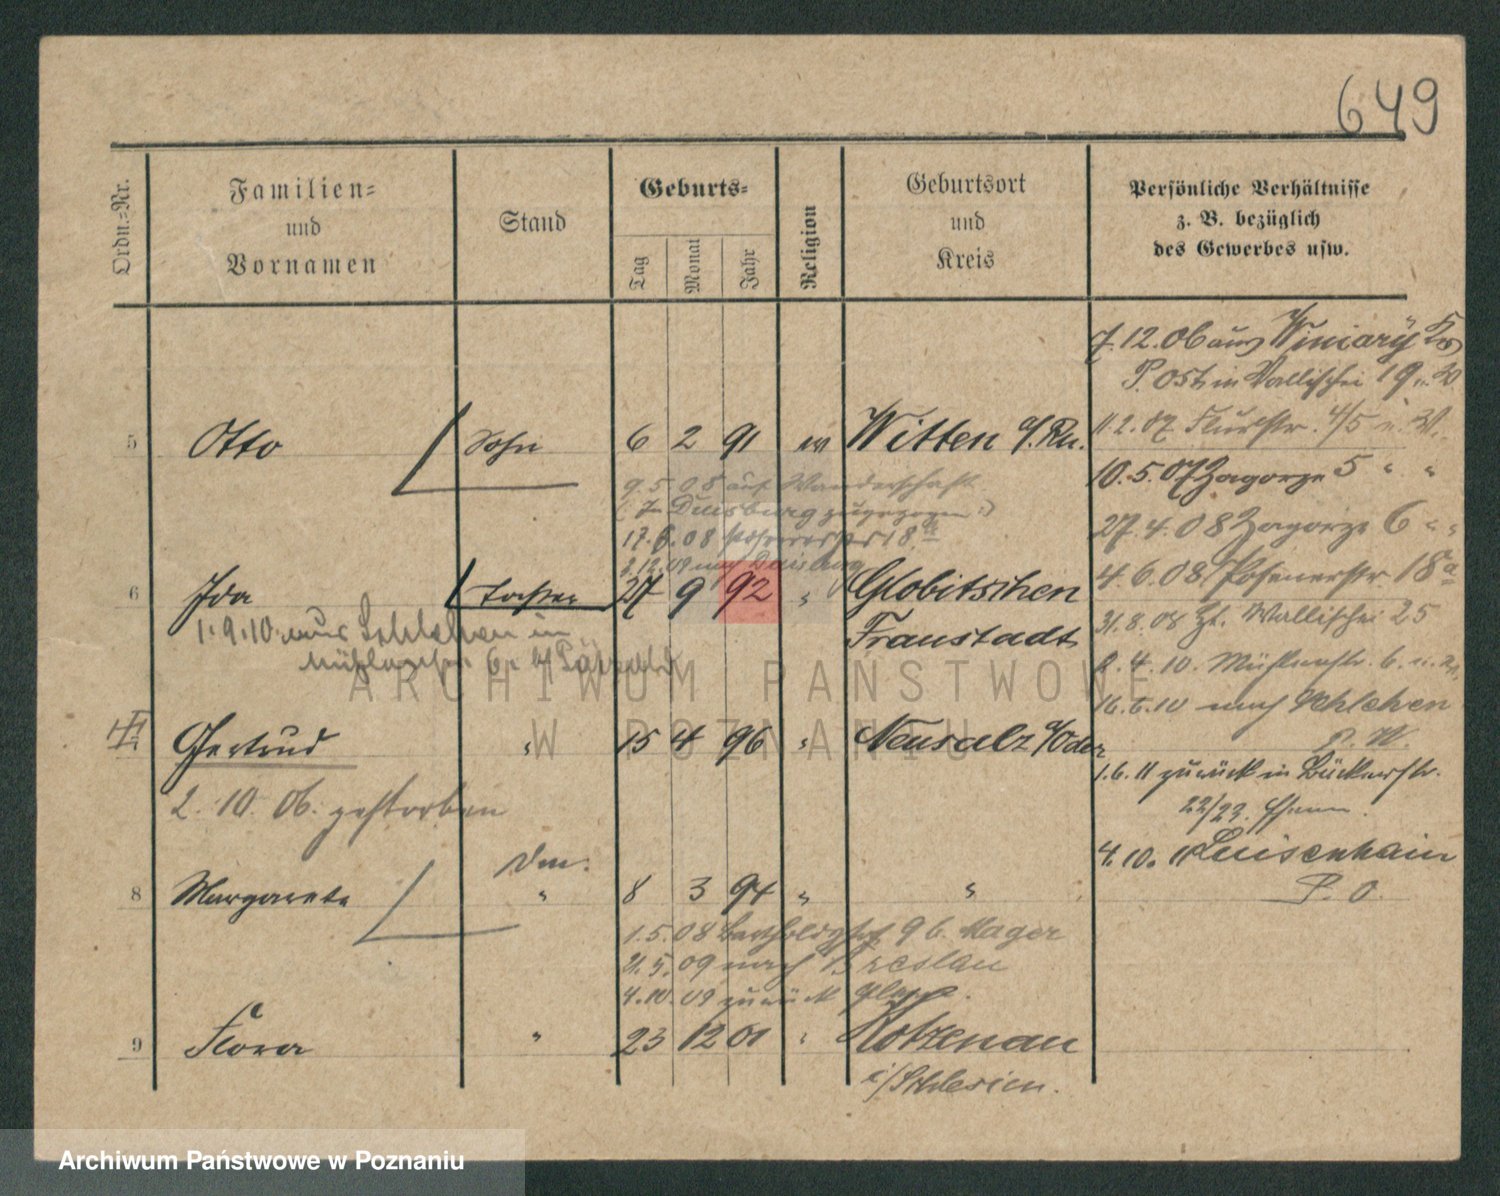 649
Ordn.=Nr.
Familien=
und
Vornamen
Stand
Geburts=
Tag
Monat
Jahr
Religion
Geburtsort
und
Kreis
Persönliche Verhältnisse
z. B. bezüglich
des Gewerbes usw.
7.12.06 aus Winiary Kr.
P. Ost in Wallischei 19
5 Otto Sohn 6 2 91 ev Witten a/. Ru.
11.2.07 Flurstr. 4/5
10.5.07 Zagorze 5 " "
9.5.08 auf Wanderschaft
(In Duisburg zugezogen)
27.4.08 Zagorze 6 " "
17. .08 18a
2.12.09 nach Duisburg
4.6.08 Posenerstr. 18a
6 Ida Tochter 27 9 92 " Globitschen
Fraustadt
31.8.08 Wallischei 25
1.9.10 aus Schlehen in
2.4.10. Mühlenstr. 6.
16.6.10 nach Schlehen
P. W.
Gertrud " 15 4 96 " Neusalz a/Oder
1.6.11 zurück in Bückerstr.
22/23.
2.10.06. gestorben
4.10.11 Luisenhain
P. O.
8 Margarete " 8 3 94 " "
1.5.08 96. Mager
21.5.09 nach Breslau
4.10.09 zurück
9 Flora " 23 12 01 " Kotzenau
i/Schlesien.
ARCHIWUM PAŃSTWOWE
W POZNANIU
Archiwum Państwowe w Poznaniu